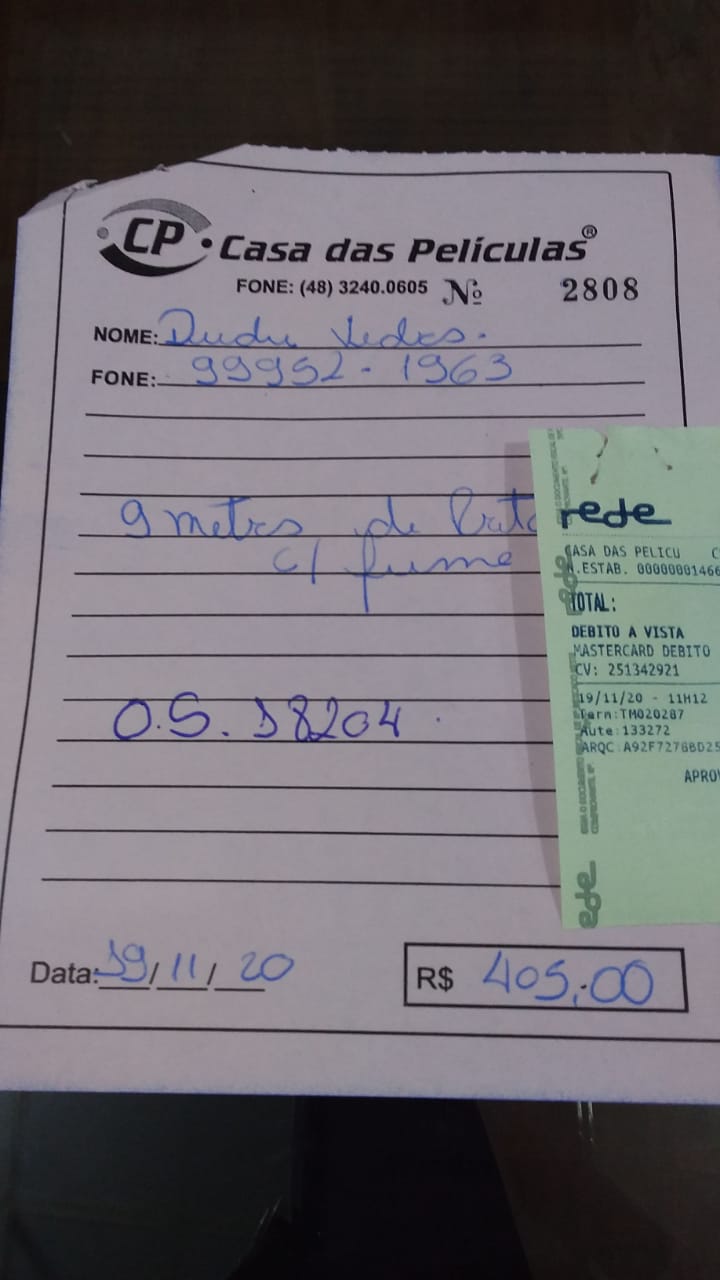 CP • Casa das Películas®
FONE: (48) 3240.0605 Nº 2808
NOME: Dudu
FONE: 99952-1963
9 metros de
c/ fume
O.S. 18204
Data: 19/11/20
R$ 405,00
rede
CASA DAS PELICU
N.ESTAB. 00000001466
TOTAL:
DEBITO A VISTA
MASTERCARD DEBITO
CV: 251342921
19/11/20 - 11H12
Term:TM020287
Aute:133272
ARQC:A92F7276BD25
APROV